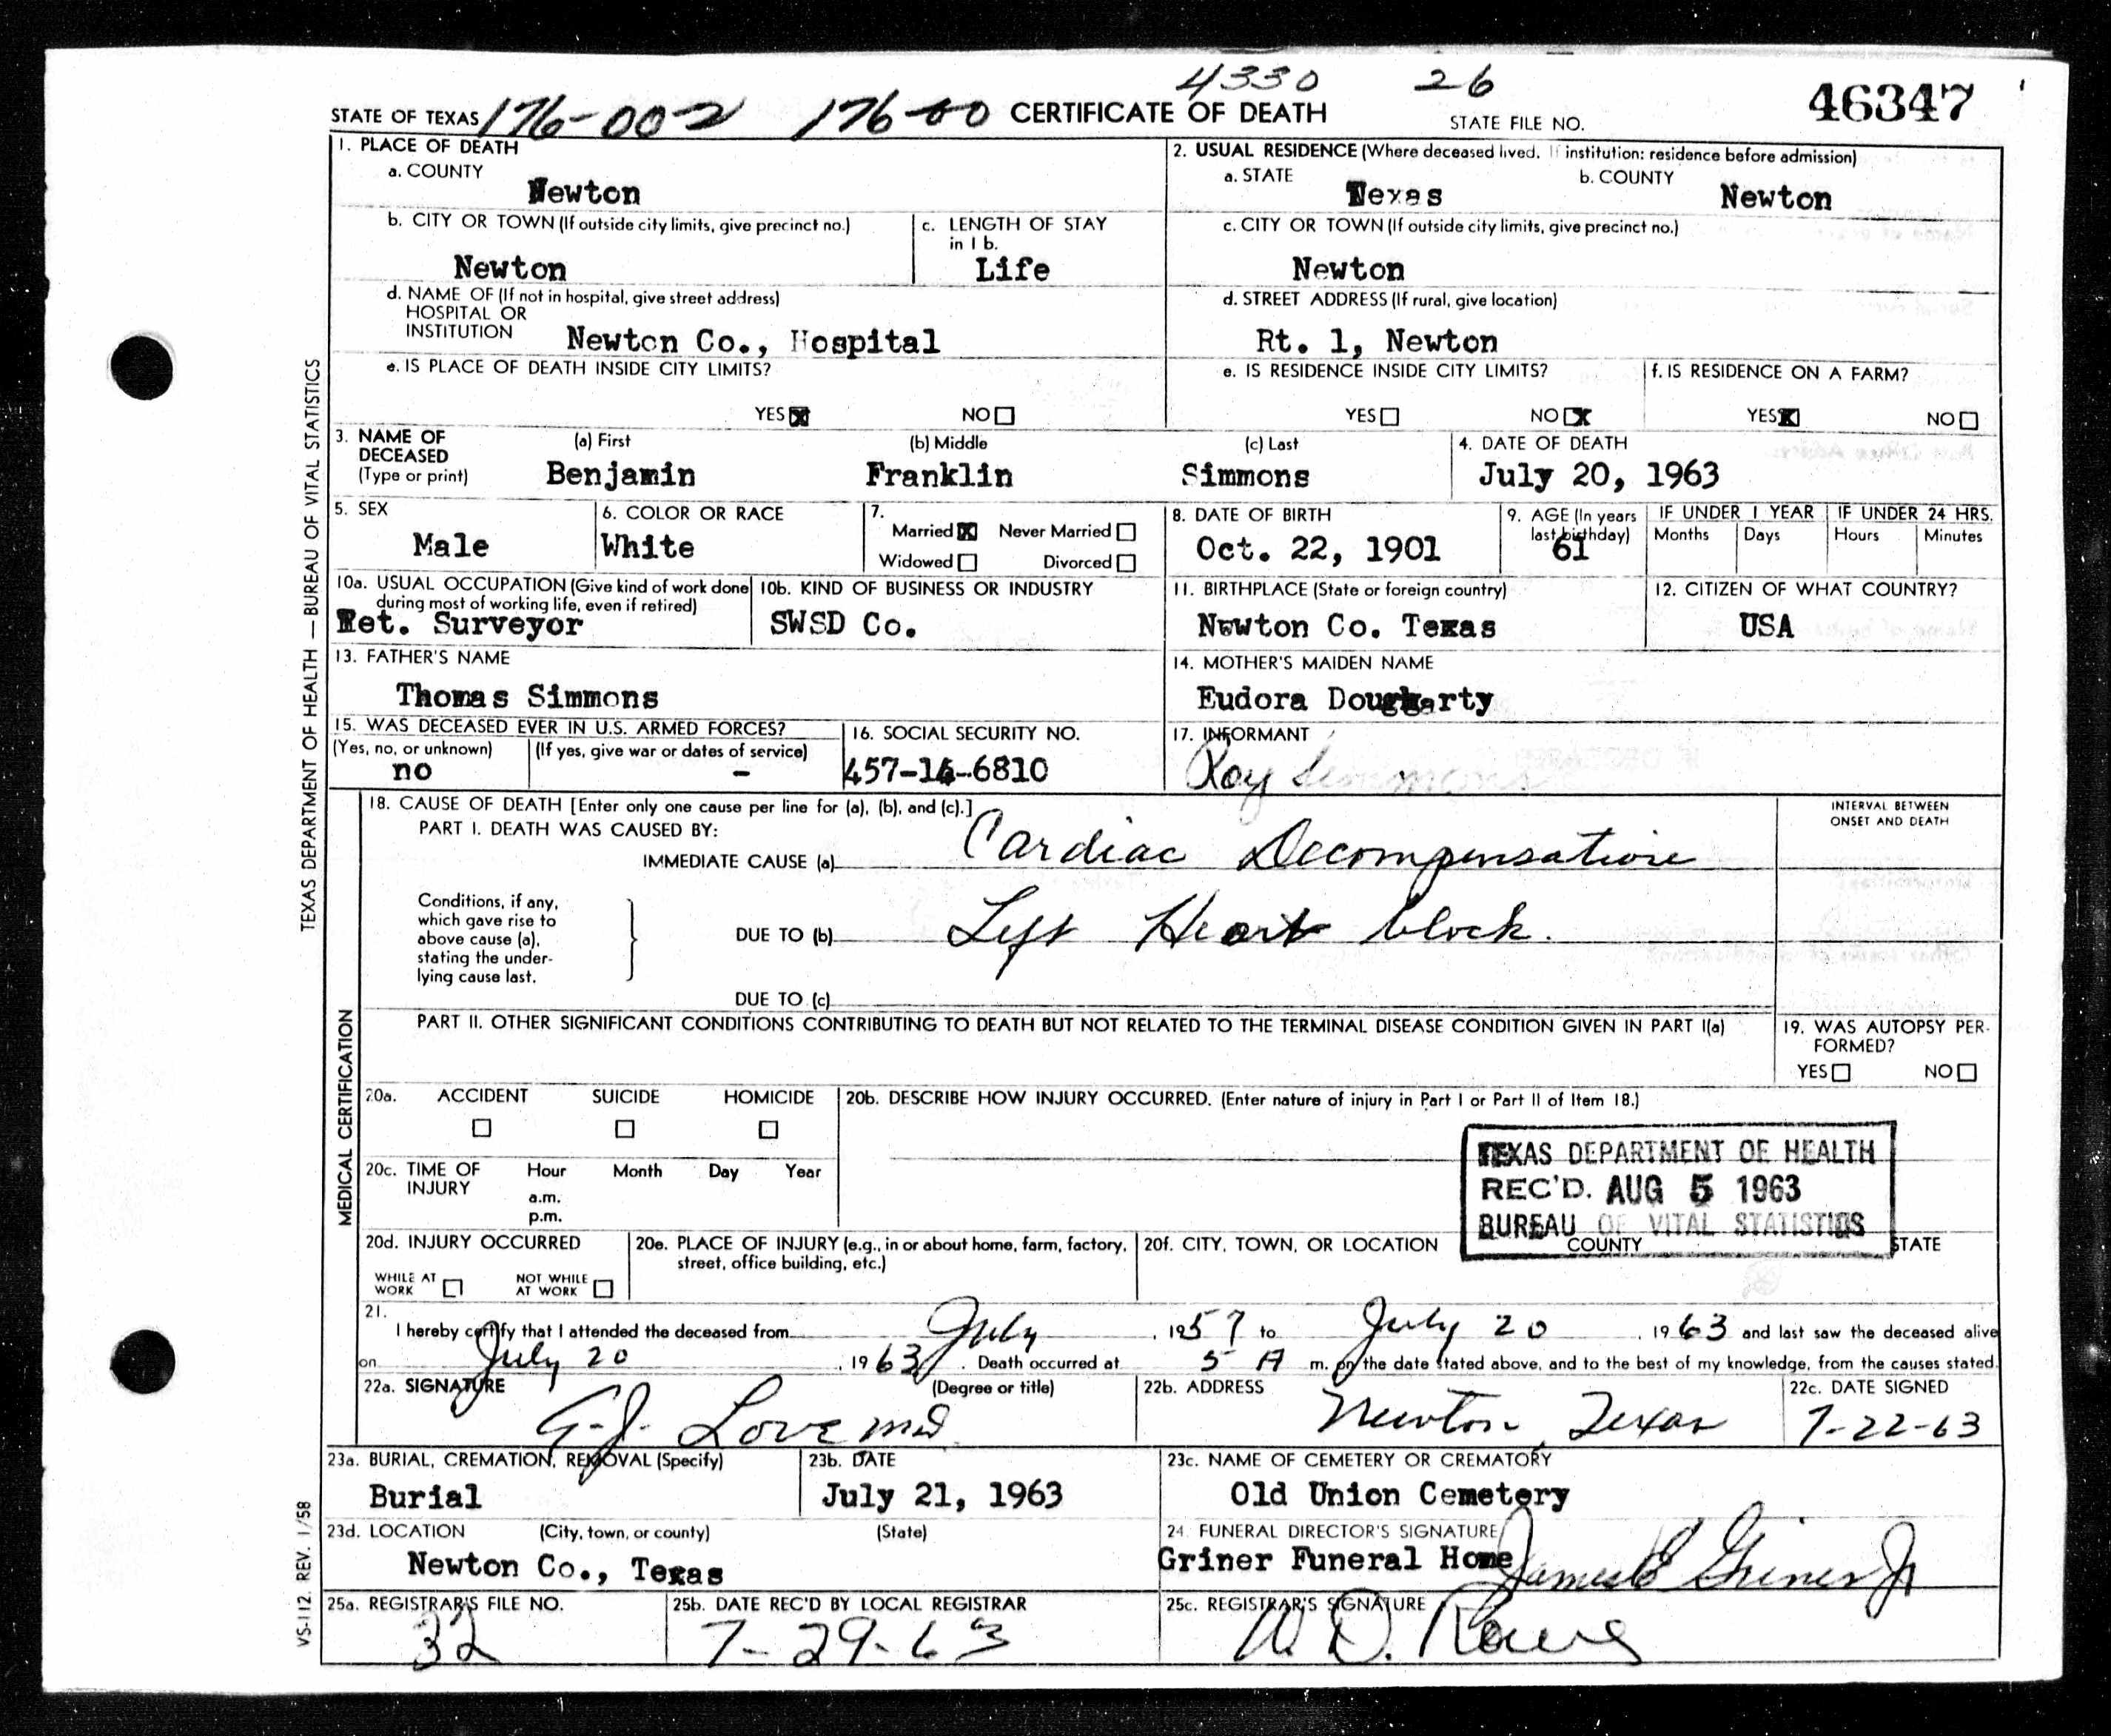 4330 26
STATE OF TEXAS 176-002 176-00 CERTIFICATE OF DEATH STATE FILE NO. 46347
TEXAS DEPARTMENT OF HEALTH — BUREAU OF VITAL STATISTICS
1. PLACE OF DEATH
a. COUNTY
Newton
2. USUAL RESIDENCE (Where deceased lived. If institution: residence before admission)
a. STATE b. COUNTY
Texas Newton
b. CITY OR TOWN (If outside city limits, give precinct no.)
Newton
c. LENGTH OF STAY
in 1 b.
Life
c. CITY OR TOWN (If outside city limits, give precinct no.)
Newton
d. NAME OF (If not in hospital, give street address)
HOSPITAL OR
INSTITUTION Newton Co., Hospital
d. STREET ADDRESS (If rural, give location)
Rt. 1, Newton
e. IS PLACE OF DEATH INSIDE CITY LIMITS?
YES X NO
e. IS RESIDENCE INSIDE CITY LIMITS?
YES NO X
f. IS RESIDENCE ON A FARM?
YES X NO
3. NAME OF
DECEASED
(Type or print)
(a) First (b) Middle (c) Last
Benjamin Franklin Simmons
4. DATE OF DEATH
July 20, 1963
5. SEX
Male
6. COLOR OR RACE
White
7.
Married X Never Married
Widowed Divorced
8. DATE OF BIRTH
Oct. 22, 1901
9. AGE (In years
last birthday)
61
IF UNDER 1 YEAR IF UNDER 24 HRS.
Months Days Hours Minutes
10a. USUAL OCCUPATION (Give kind of work done
during most of working life, even if retired)
Ret. Surveyor
10b. KIND OF BUSINESS OR INDUSTRY
SWSD Co.
11. BIRTHPLACE (State or foreign country)
Newton Co. Texas
12. CITIZEN OF WHAT COUNTRY?
USA
13. FATHER'S NAME
Thomas Simmons
14. MOTHER'S MAIDEN NAME
Eudora Dougharty
15. WAS DECEASED EVER IN U.S. ARMED FORCES?
(Yes, no, or unknown) (If yes, give war or dates of service)
no -
16. SOCIAL SECURITY NO.
457-16-6810
17. INFORMANT
Roy Simmons
MEDICAL CERTIFICATION
18. CAUSE OF DEATH [Enter only one cause per line for (a), (b), and (c).]
INTERVAL BETWEEN
ONSET AND DEATH
PART I. DEATH WAS CAUSED BY:
IMMEDIATE CAUSE (a) Cardiac Decompensation
Conditions, if any,
which gave rise to
above cause (a),
stating the under-
lying cause last.
DUE TO (b) Left Heart block.
DUE TO (c)
PART II. OTHER SIGNIFICANT CONDITIONS CONTRIBUTING TO DEATH BUT NOT RELATED TO THE TERMINAL DISEASE CONDITION GIVEN IN PART I(a)
19. WAS AUTOPSY PER-
FORMED?
YES NO
20a. ACCIDENT SUICIDE HOMICIDE
20b. DESCRIBE HOW INJURY OCCURRED. (Enter nature of injury in Part I or Part II of Item 18.)
20c. TIME OF
INJURY
Hour Month Day Year
a.m.
p.m.
TEXAS DEPARTMENT OF HEALTH
REC'D. AUG 5 1963
BUREAU OF VITAL STATISTICS
20d. INJURY OCCURRED
WHILE AT
WORK
NOT WHILE
AT WORK
20e. PLACE OF INJURY (e.g., in or about home, farm, factory,
street, office building, etc.)
20f. CITY, TOWN, OR LOCATION COUNTY STATE
21.
I hereby certify that I attended the deceased from July, 1957 to July 20, 1963 and last saw the deceased alive
on July 20, 1963. Death occurred at 5 A m. on the date stated above, and to the best of my knowledge, from the causes stated.
22a. SIGNATURE (Degree or title)
G.J. Love MD
22b. ADDRESS
Newton, Texas
22c. DATE SIGNED
7-22-63
23a. BURIAL, CREMATION, REMOVAL (Specify)
Burial
23b. DATE
July 21, 1963
23c. NAME OF CEMETERY OR CREMATORY
Old Union Cemetery
23d. LOCATION (City, town, or county) (State)
Newton Co., Texas
24. FUNERAL DIRECTOR'S SIGNATURE
Griner Funeral Home James E Griner Jr
25a. REGISTRAR'S FILE NO.
32
25b. DATE REC'D BY LOCAL REGISTRAR
7-29-63
25c. REGISTRAR'S SIGNATURE
VS-112. REV. 1/58